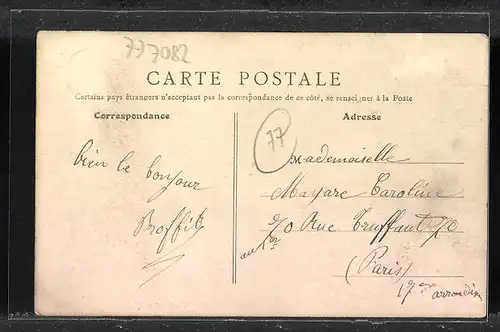 777082
CARTE POSTALE
Certains pays étrangers n'acceptant pas la correspondance de ce côté, se renseigner à la Poste
Correspondance
Adresse
77
bien le
bonjour
Mademoiselle
Mayare Caroline
70 Rue Truffaut 70
(Paris)
17e arrondism